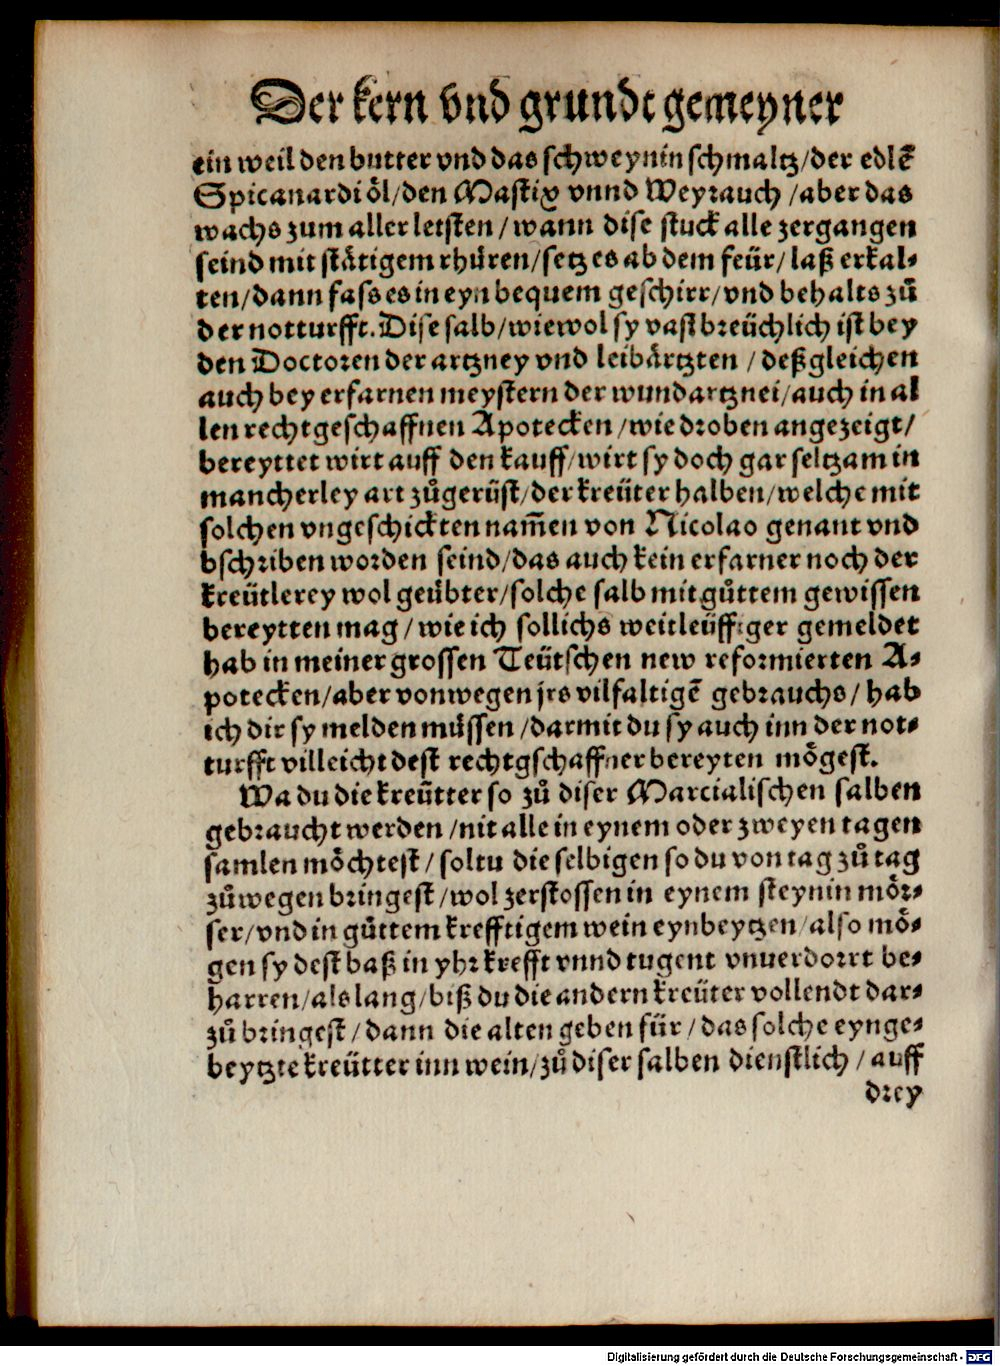 Der kern vnd grundt gemeyner
ein weil den butter vnd das schweynin schmaltz/der edlẽ
Spicanardi öl/den Mastix vnnd Weyrauch/aber das
wachs zum aller letsten/wann dise stuck alle zergangen
seind mit stätigem rhüren/setz es ab dem feür/laß erkal⸗
ten/dann fass es in eyn bequem geschirr/vnd behalts zů
der notturfft. Dise salb/wiewol sy vast breüchlich ist bey
den Doctoren der artzney vnd leibärtzten/deßgleichen
auch bey erfarnen meystern der wundartznei/auch in al
len rechtgeschaffnen Apotecken/wie droben angezeigt/
bereyttet wirt auff den kauff/wirt sy doch gar seltzam in
mancherley art zůgerüst/der kreüter halben/welche mit
solchen vngeschickten nam̃en von Nicolao genant vnd
bschriben worden seind/das auch kein erfarner noch der
kreütlerey wol geübter/solche salb mit gůttem gewissen
bereytten mag/wie ich sollichs weitleüffiger gemeldet
hab in meiner grossen Teütschen new reformierten A⸗
potecken/aber vonwegen jrs vilfaltigẽ gebrauchs/hab
ich dir sy melden müssen/darmit du sy auch inn der not⸗
turfft villeicht dest rechtgschaffner bereyten mögest.
Wa du die kreütter so zů diser Marcialischen salben
gebraucht werden/nit alle in eynem oder zweyen tagen
samlen möchtest/soltu die selbigen so du von tag zů tag
zůwegen bringest/wol zerstossen in eynem steynin mör⸗
ser/vnd in gůttem krefftigem wein eynbeytzen/also mö⸗
gen sy dest baß in yhr krefft vnnd tugent vnuerdorrt be⸗
harren/als lang/biß du die andern kreüter vollendt dar⸗
zů bringest/dann die alten geben für/das solche eynge⸗
beytzte kreütter inn wein/zů diser salben dienstlich/auff
drey
Digitalisierung gefördert durch die Deutsche Forschungsgemeinschaft - DFG